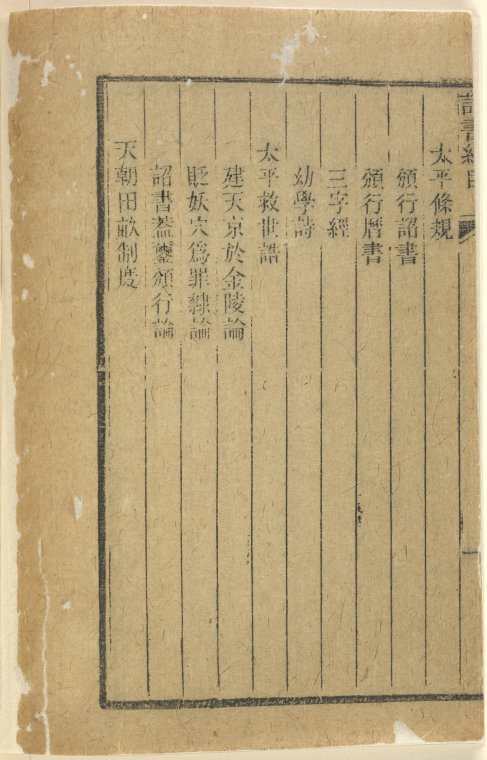 詔書總目
太平條規
頒行詔書
頒行曆書
三字經
幼學詩
太平救世誥
建天京於金陵論
貶妖穴爲罪隸論
詔書蓋璽頒行論
天朝田畝制度